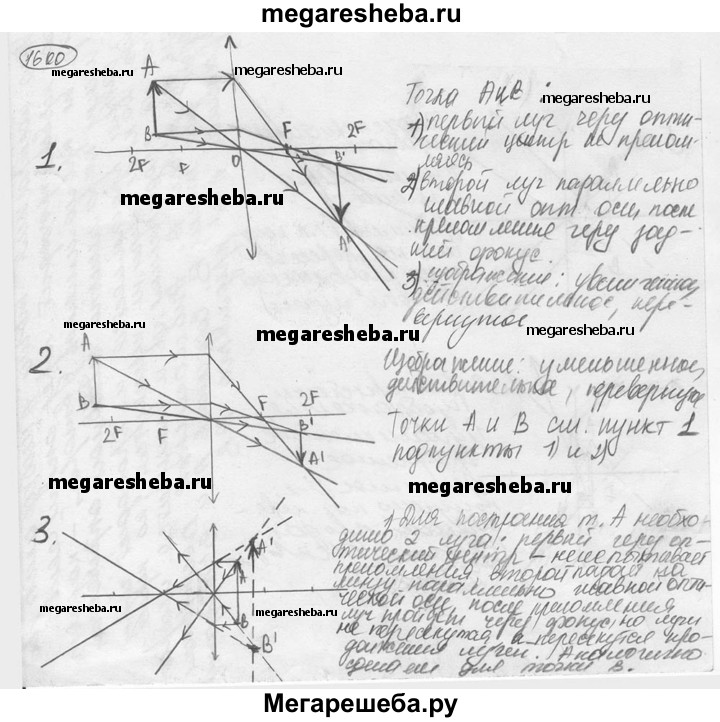 megaresheba.ru
1600
megaresheba.ru
megaresheba.ru
1.
A
B
2F
F
O
F
2F
B'
A'
megaresheba.ru
Точка А и В:
1) первый луч через опти-
ческий центр не прелом-
ляясь
2) второй луч параллельно
главной опт. оси после
преломление через зад-
ний фокус.
3) изображение: увеличенное,
действительное, пере-
вернутое
megaresheba.ru
megaresheba.ru
megaresheba.ru
2.
A
B
2F
F
F
2F
B'
A'
Изображение: уменьшенное,
действительное, перевернутое
Точки А и В см. пункт 1
подпункты 1) и 2)
megaresheba.ru
megaresheba.ru
3.
A'
A
B
B'
megaresheba.ru
megaresheba.ru
1) Для построения т. А необхо-
димо 2 луча: первый через оп-
тический центр – не испытывает
преломления второй падой на
линзу параллельно главной опти-
ческой оси после преломления
луч пройдет через фокус но лучи
не пересекутся а пересекутся про-
должения лучей. Аналогично
для точки В.
Мегарешеба.ру